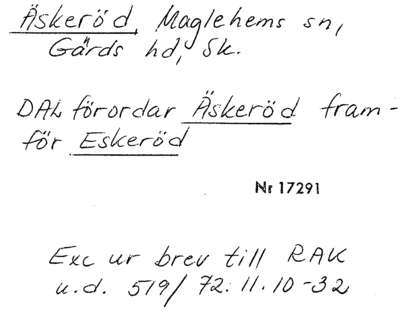 Äskeröd, Maglehems sn,
Gärds hd, Sk.
DAL förordar Äskeröd fram-
för Eskeröd
Nr 17291
Exc ur brev till RAK
u.d. 519/72.11.10-32